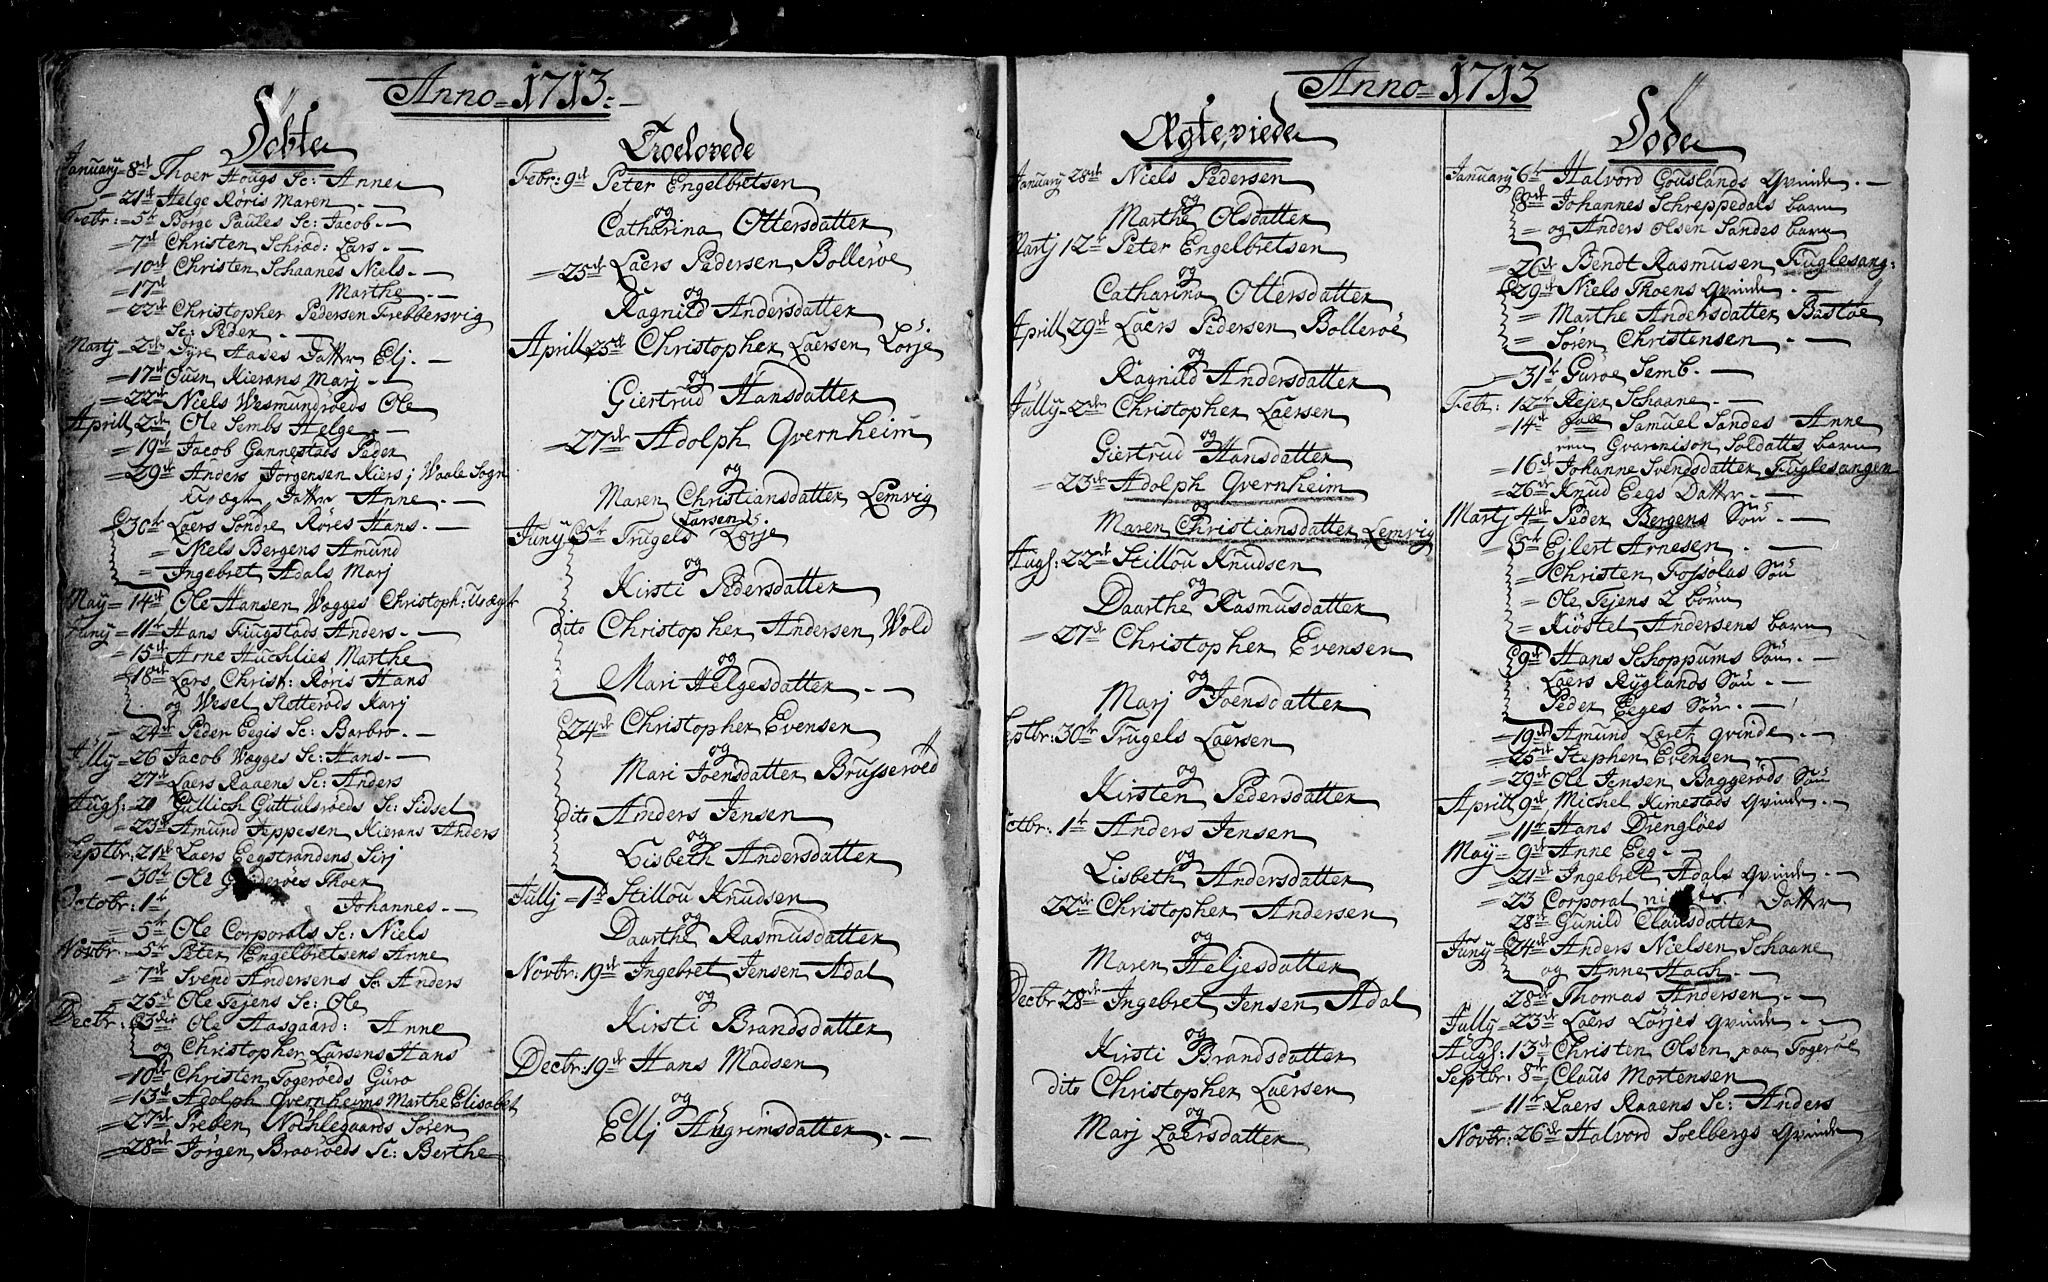 Anno 1713.
Döbte
January 8de Thoer Hougs Sc: Anne
= 21de Helge Röris Maren
Febr: 5te Börge Paules Sc: Jacob
= 7de Christen Lars
= 10de Christen Schaanes Niels
= 17de Marthe
= 22de Christopher Pedersen Trebbersvig
Sc: Peder
Martj 2de Dyre Aases Datter Elj
= 17de Ouen Kierans Marj
= 22de Niels Wesmundröeds Ole
Aprill 2de Ole Sembs Helge
= 19de Jacob Gannestads Peder
= 29de Anders Jörgensen Kiers i Waale Sogn
Datter Anne
30te Laers Söndre Röres Hans
= Niels Bergens Amund
= Ingebret Adals Marj
May = 14de Ole Hansen Wegges Christoph: Uægt
Juny = 11te Hans Haugstads Anders
= 15de Arne Marthe
18de Lars Christ: Röris Hans
og Wesel Slotteröds Karj
24de Peder Eegis Sc: Barbro
Jully = 26 Jacob Wegges Sc: Hans
= 27de Laers Raaens Sc: Anders
Augs: 20 Gullich Guttulsröeds Sc: Sidsel
= 23de Amund Jeppesen Kierans Anders
Septbr: 21de Laers Eegstrandens Sirj
= 30te Ole Thoer
Octobr: 1te Johannes
= 5te Ole Corporals Sc: Niels
Novbr: 5te Peter Engelbretsens Anne
= 7de Svend Andersens Sc Anders
= 25de Ole Tejens Sc: Ole
Decbr: 3die Ole Aasgaard: Anne
og Christopher Larsens Hans
= 10de Christen Fogeröeds Guro
= 13de Adolph Qvernheims Marthe Elisabet
= 27de Preben Nöchlegaards Sören
= 28de Jörgen Braaröeds Sc: Berthe
Troelovede
Febr: 9de Peter Engelbretsen
og
Catharina Ottersdatter
= 25de Laers Pedersen Bolleröe
og
Ragnild Andersdatter
Aprill 23de Christopher Laersen Lörje
og
Giertrud Hansdatter
= 27de Adolph Qvernheim
og
Maren Christiansdatter Lemvig
Larsen
Juny 5te Trugels Lörje
og
Kirsti Pedersdatter
dito Christopher Andersen Wold
og
Mari Helgesdatter
24de Christopher Evensen
og
Mari Joensdatter Brusseröed
dito Anders Jensen
og
Lisbeth Andersdatter
Jullj = 1te Stillou Knudsen
og
Daarthe Rasmusdatter
Novbr: 19de Ingebret Jensen Adal
og
Kirsti Brandsdatter
Decbr: 19de Hans Madsen
og
Ellj Angrimsdatter
Anno 1713
Ægteviede
January 28de Niels Pedersen
og
Marthe Olsdatter
Martj 12te Peter Engelbretsen
og
Catharina Ottersdatter
Aprill 29de Laers Pedersen Bolleröe
og
Ragnild Andersdatter
Jully 2de Christopher Laersen
og
Giertrud Hansdatter
= 23de Adolph Qvernheim
og
Maren Christiansdatter Lemvig
Augs: 22de Stillou Knudsen
og
Daarthe Rasmusdatter
= 27de Christopher Evensen
og
Marj Joensdatter
Septbr: 30te Trugels Laersen
og
Kirsten Pedersdatter
Octbr: 1te Anders Jensen
og
Lisbeth Andersdatter
22de Christopher Andersen
og
Maren Heljesdatter
Decbr 28de Ingebret Jensen Adal
og
Kirsti Brandsdatter
dito Christopher Laersen
og
Marj Laersdatter
Döde
January 6te Halvord Gouslands Qvinde
8de Johannes Schreppedals barn
= og Anders Olsen Sandes barn
= 26de Bendt Rasmusen Fuglesang:
29de Niels Thoens Qvinde
= Marthe Andersdatter Bastöe
= Sören Christensen
= 31te Guroe Semb
Febr: 12te Rejer Schaane
= 14de Samuel Sandes Anne
en Gvarnison Soldatts barn
= 16de Johanne Svendsdatter Fuglesangen
= 26de Knud Eegs Datter
Martj 4de Peder Bergens Sön
= 5te Ejlert Arnesen
= Christen Fossolas Sön
= Ole Tejens 2 börn
= Kiöstel Andersens barn
9de Hans Schoppums Sön
Laers Ryglands Sön
Peder Eeges Sön
= 19de Amund Læretz Qvinde
= 25de Stephen Evensen
= 29de Ole Jensen Baggeröds Sön
Aprill 9de Michel Kimestads Qvinde
= 11te Hans Diengköes
May = 9de Anne Eeg
= 21de Ingebret Adals Qvinde
= 23 Corporal Datter
28de Gunild Clausdatter
Juny 24de Anders Nielsen Schaane
og Anne Hach
= 28de Thomas Andersen
Jully = 23de Laers Lörjes Qvinde
Augs: 13de Christen Olsen paa Fogeröe
Septbr: 8de Claus Mortensen
= 11te Laers Raaens Sc: Anders
Novbr: 26de Halvord Soelbergs Qvinde